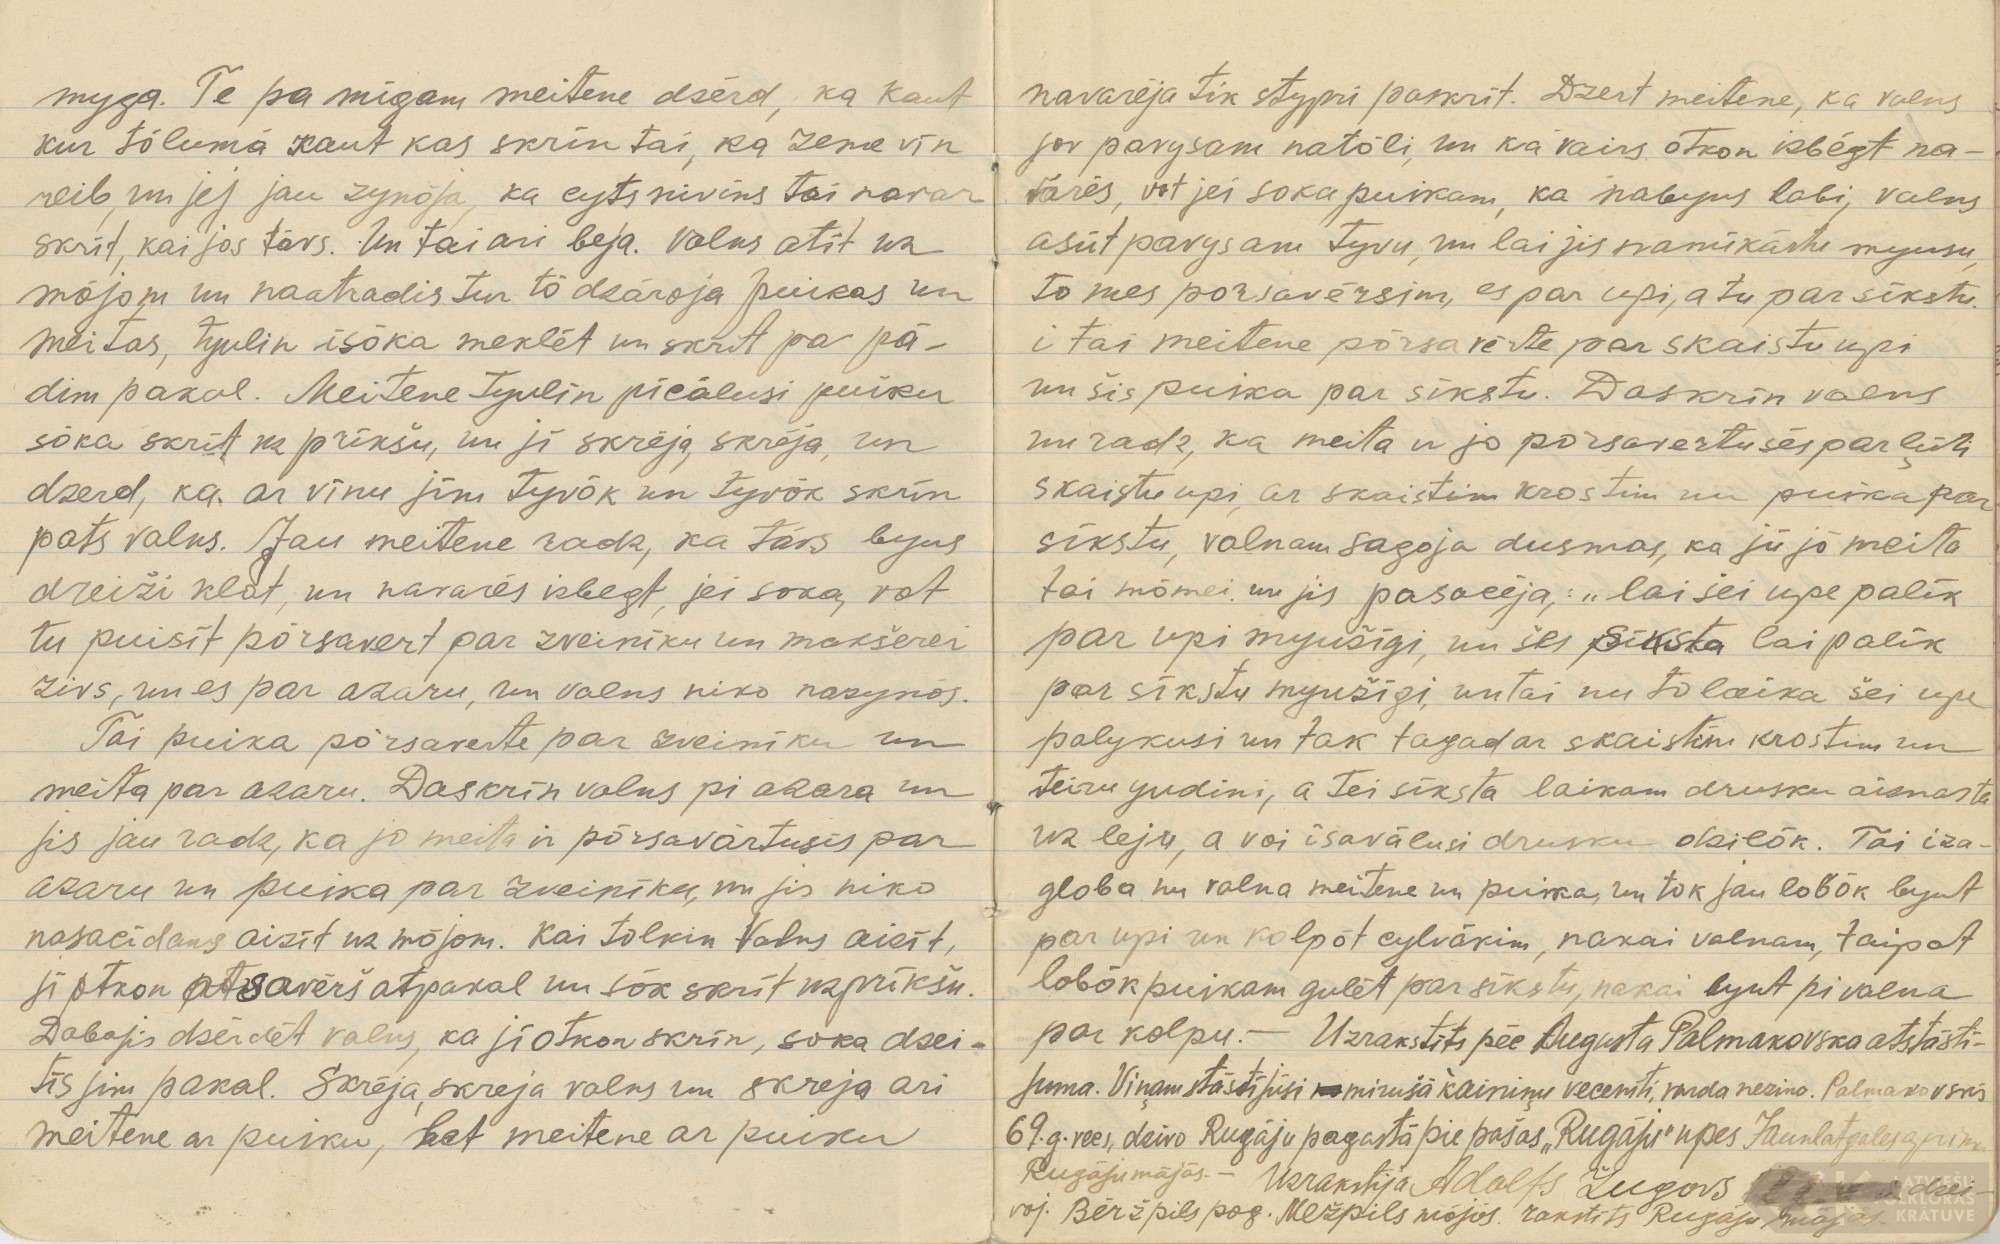 myga. Te pa mīgam meitene dzērd, ka kaut
kur tōlumā kaut kas skrīn tai, ka zeme vīn
reib, un jej jau zynōja, ka cyts nivīns tai navar
skrīt, kai jos tāvs. Un tai ari beja. Valns atīt uz
mōjom un naatradis tur tō dzāroja puikas un
meitas, tyulin isōka meklēt un skrīt pa pā-
dim pakaļ. Meitene tyulin picālusi puiku
sōka skrīt uz prīkšu, un ji skrēja, skrēja, un
dzerd, ka ar vīnu jim tyvōk un tyvōk skrīn
pats valns. Jau meitene radz, ka tāvs byus
dreiži klōt, un navarēs izbegt, jei soka, vot
tu puisīt pōrsavert par zveinīku un makšerei
zivs, un es par azaru, un valns niko nazynōs.
Tai puika pōrsaverte par zveinīku un
meita par azaru. Daskrīn valns pi azara un
jis jau radz, ka jo meita ir pōrsavārtusis par
azaru un puika par zveinīku, un jis niko
nasacīdams aizīt uz mōjom. Kai tolkin Valns aizīt,
ji otkon atsavērš atpakaļ un sōk skrīt uz prīkšu.
Dabojis dzērdēt valns, ka ji otkon skrīn, soka dzei-
tīs jim pakaļ. Skrēja, skreja valns un skreja ari
meitene ar puiku, bet meitene ar puiku
navarēja tik stypri paskrīt. Dzert meitene, ka valns
jov pavysam natōli, un ka vairs otkon izbēgt na-
varēs, vot jei soka puikam, ka nabyus labi, valns
asūt pavysam tyvu, un lai jis namīkātu myusu,
to mes pōrsavērsim, es par upi, a tu par sīkstu.
i tai meitene pōrsavērte par skaistu upi
un šis puika par sīkstu. Daskrīn valns
un radz, ka meita ir jo pōrsavertusēs par ļūti
skaistu upi, ar skaistim krostim un puika par
sīkstu, valnam sagōja dusmas, ka jū jō meita
tai mōmei un jis pasacēja: „lai šei upe palīk
par upi myužīgi, un šis sīksta lai palīk
par sīkstu myužīgi, un tai nu to laika šei upe
palykusi un tak tagad ar skaistim krostim un
teiru yudini, a tei sīksta laikam drusku aiznasta
uz leju, a voi īsavālusi drusku dziļōk. Tai iza-
globa nu valna meitene un puika, un tok jau lobōk byut
par upi un kolpōt cylvākim, nakai valnam, taipat
lobōk puikam gulēt par sīkstu, nakai byut pi valna
par kolpu. — Uzrakstīts pēc Augusta Palmakovska atstāstī-
juma. Viņam stāstījusi mirušā kaimiņu vecenīti, vārda nezino. Palmakovskis
69. g. vecs, dzivo Rugāju pagastā pie pašas „Rugāju" upes Jaunlatgales apriņ.
Rugāju mājās. — Uzrakstīja Adolfs Žugovs dzī-
voj. Bēržpils pag. Mežpils mōjōs. rakstīts Rugāju mājās.
LATVIEŠU
FOLKLORAS
KRĀTUVE